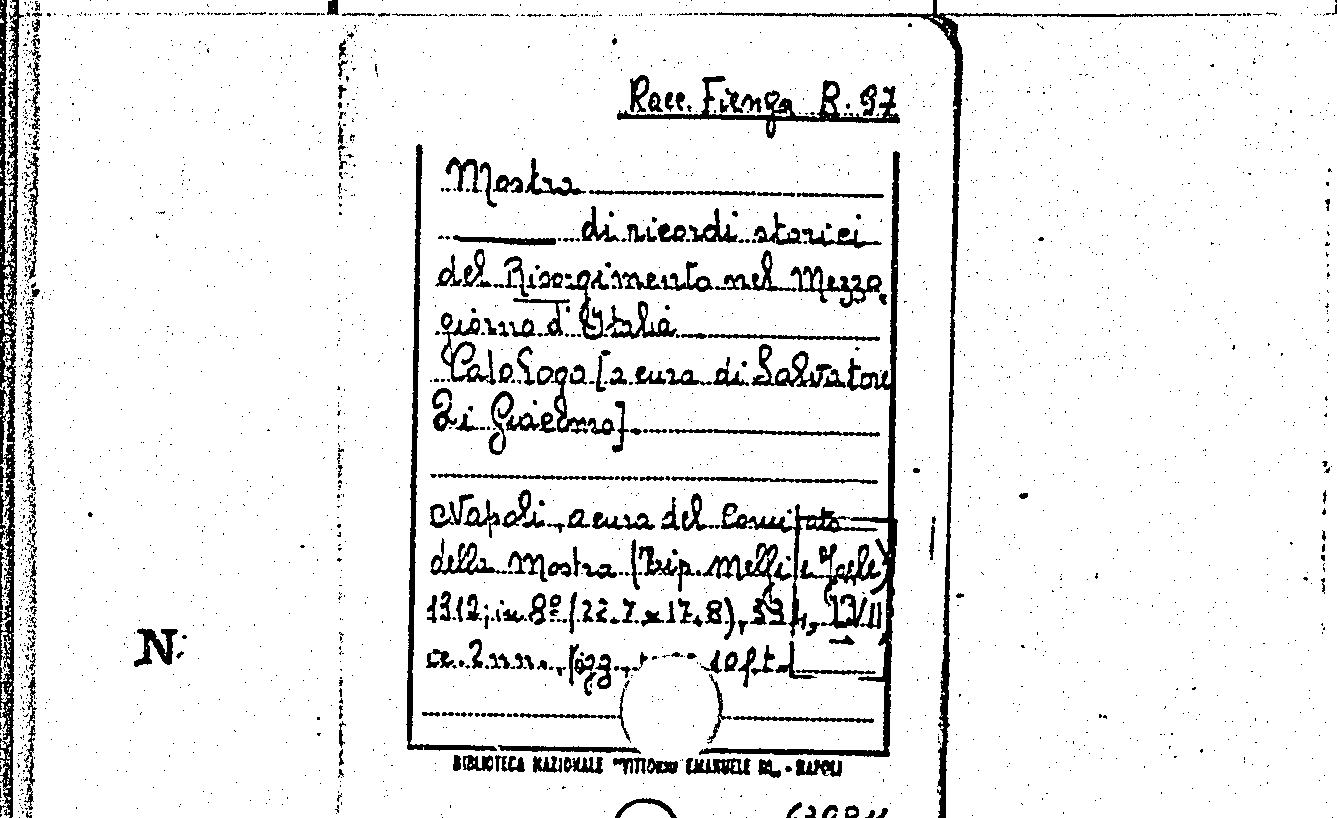 Racc. Fienga B. 97
Mostra
di ricordi storici
del Risorgimento nel Mezzo
giorno d'Italia
Catologo [a cura di Salvatore
Di Giacomo].
Napoli, a cura del Comitato
della Mostra (Tip. Melfi e Joele)
1912; in 8º (22.7 x 17.8),
cc. 2 nn., figg., 10 f.t.
BIBLIOTECA NAZIONALE "VITTORIO EMANUELE III„ - NAPOLI
N.